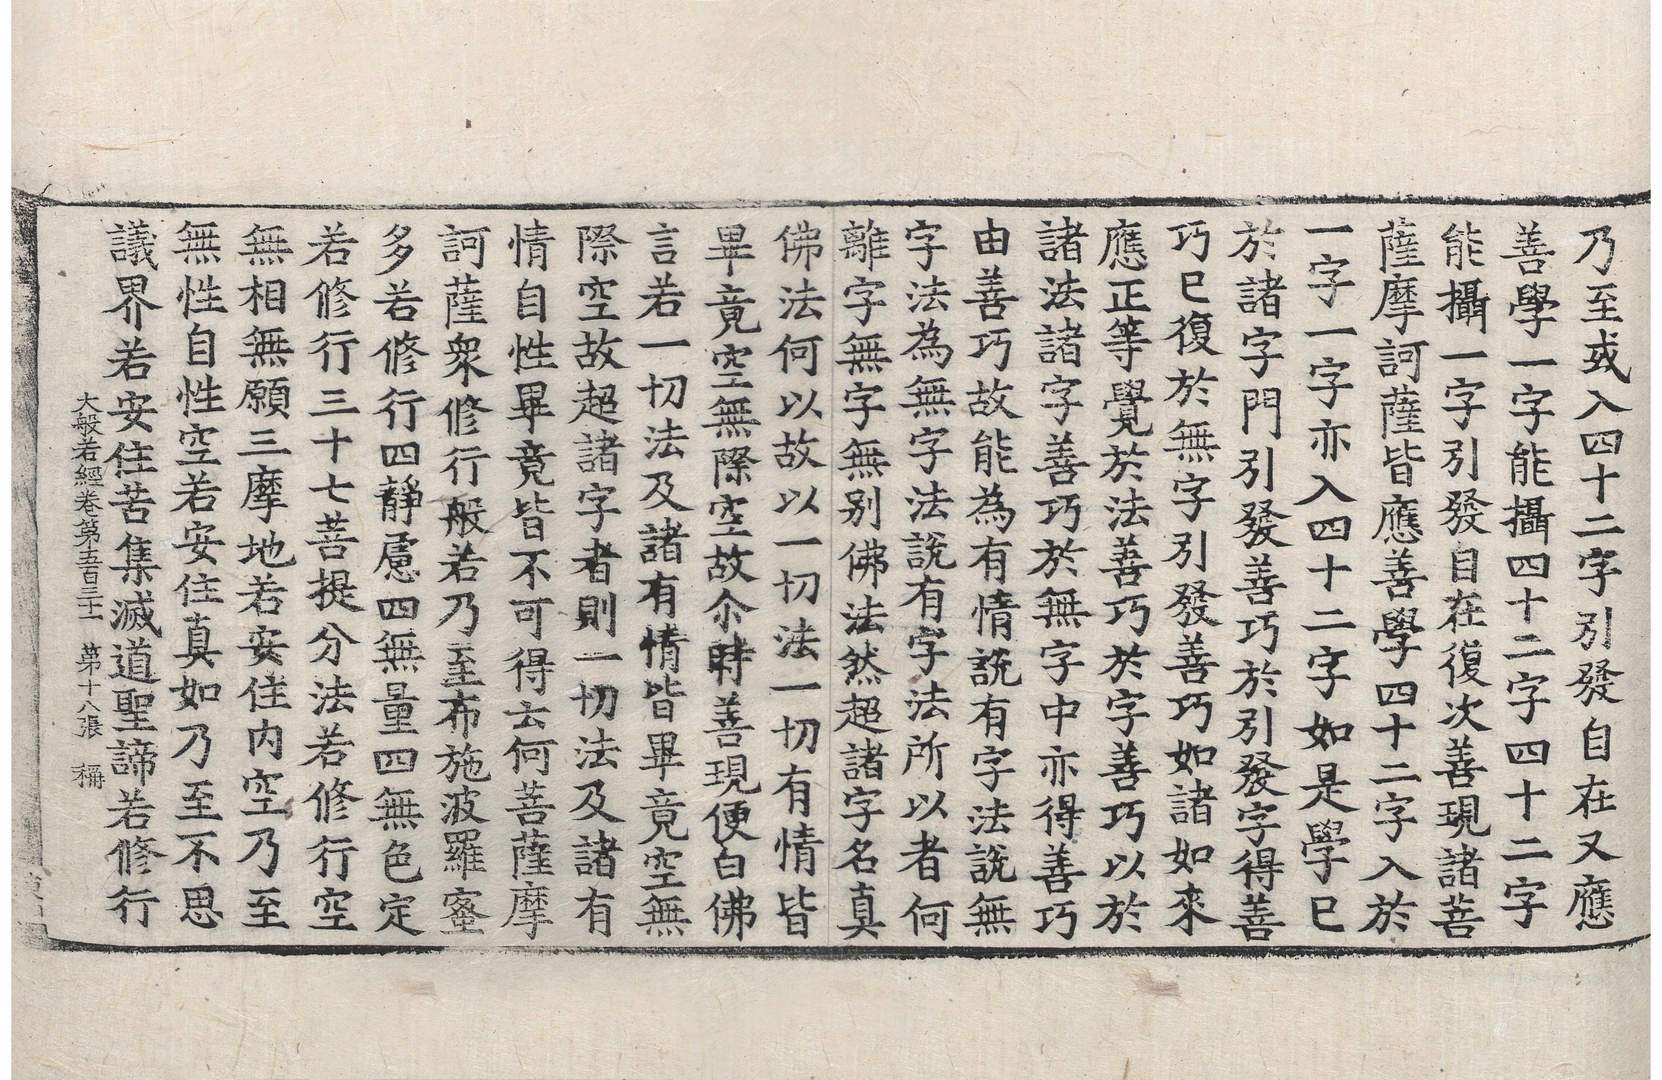 乃至或入四十二字引發自在又應
善學一字能攝四十二字四十二字
能攝一字引發自在復次善現諸菩
薩摩訶薩皆應善學四十二字入於
一字一字亦入四十二字如是學已
於諸字門引發善巧於引發字得善
巧已復於無字引發善巧如諸如來
應正等覺於法善巧於字善巧以於
諸法諸字善巧於無字中亦得善巧
由善巧故能為有情說有字法說無
字法為無字法說有字法所以者何
離字無字無別佛法然超諸字名真
佛法何以故以一切法一切有情皆
畢竟空無際空故尒時善現便白佛
言若一切法及諸有情皆畢竟空無
際空故超諸字者則一切法及諸有
情自性畢竟皆不可得云何菩薩摩
訶薩衆修行般若乃至布施波羅蜜
多若修行四靜慮四無量四無色定
若修行三十七菩提分法若修行空
無相無願三摩地若安住內空乃至
無性自性空若安住真如乃至不思
議界若安住苦集滅道聖諦若修行
大般若經卷第五百三十二 第十八張 稱